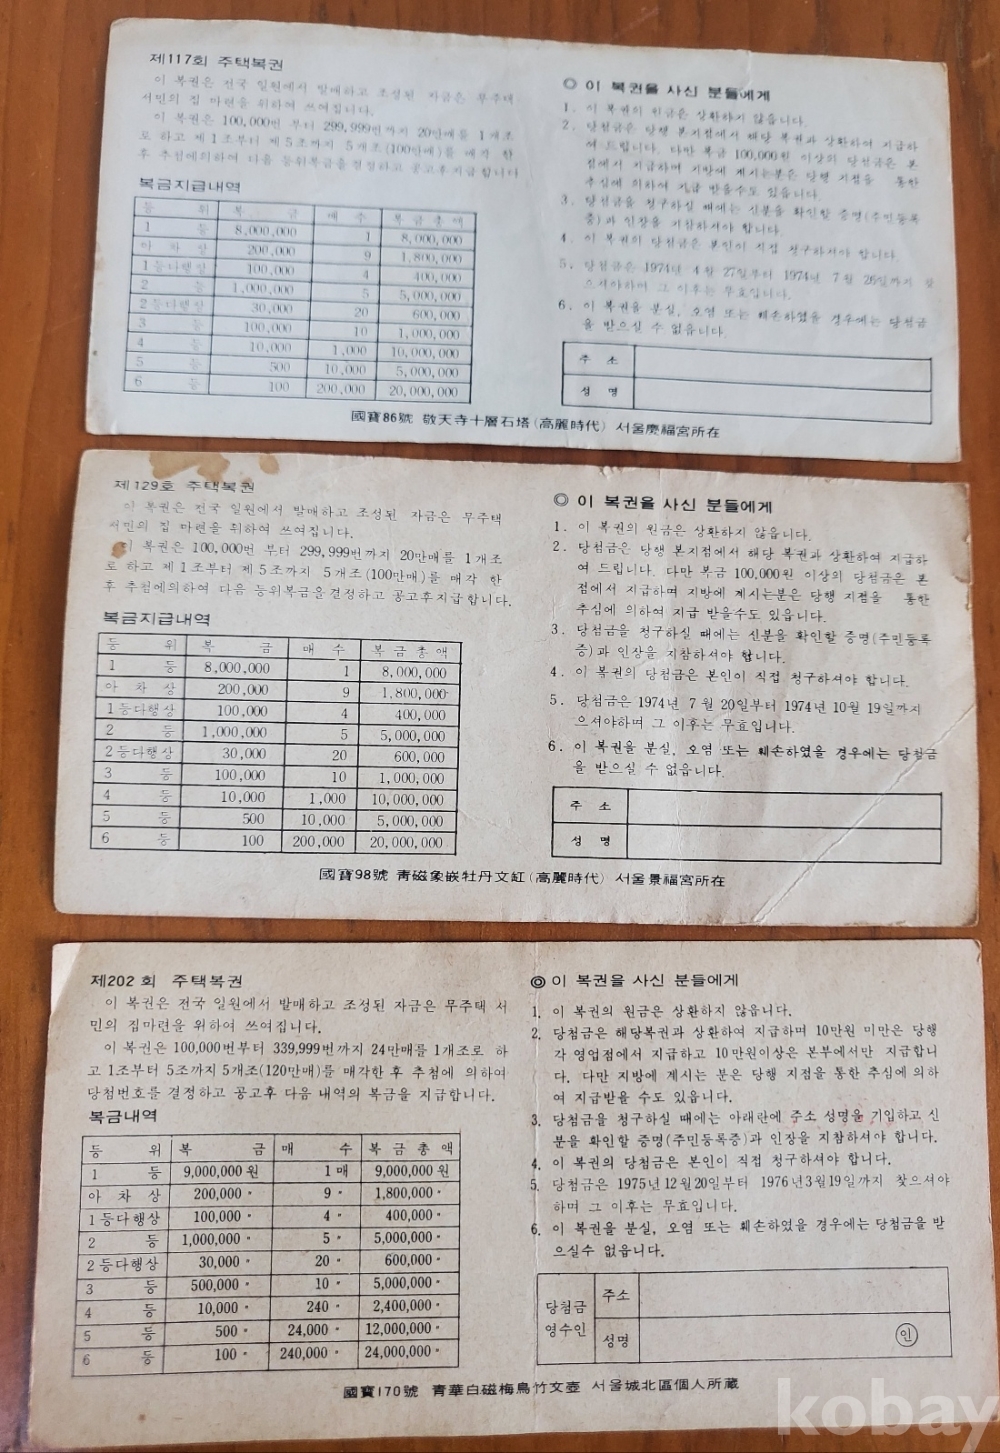 제117회 주택복권
이 복권은 전국 일원에서 발매하고 조성된 자금은 무주택
서민의 집 마련을 위하여 쓰여집니다.
이 복권은 100,000번 부터 299,999번까지 20만매를 1개조
로 하고 제1조부터 제5조까지 5개조(100만매)를 매각 한
후 추첨에의하여 다음 등위복금을결정하고 공고후지급합니다
복금지급내역
등 위 복 금 매 수 복금총액
1 등 8,000,000 1 8,000,000
아 차 상 200,000 9 1,800,000
1등다행상 100,000 4 400,000
2 등 1,000,000 5 5,000,000
2등다행상 30,000 20 600,000
3 등 100,000 10 1,000,000
4 등 10,000 1,000 10,000,000
5 등 500 10,000 5,000,000
6 등 100 200,000 20,000,000
◎ 이 복권을 사신 분들에게
1. 이 복권의 원금은 상환하지 않읍니다.
2. 당첨금은 당행 본지점에서 해당 복권과 상환하여 지급하
여 드립니다. 다만 복금 100,000원 이상의 당첨금은 본
점에서 지급하며 지방에 계시는분은 당행 지점을 통한
추심에 의하여 지급 받을수도 있읍니다.
3. 당첨금을 청구하실 때에는 신분을 확인할 증명(주민등록
증)과 인장을 지참하셔야 합니다.
4. 이 복권의 당첨금은 본인이 직접 청구하셔야 합니다.
5. 당첨금은 1974년 4월 27일부터 1974년 7월 26일까지 찾
으셔야하며 그 이후는 무효입니다.
6. 이 복권을 분실, 오염 또는 훼손하였을 경우에는 당첨금
을 받으실 수 없읍니다.
주 소
성 명
國寶86號 敬天寺十層石塔(高麗時代) 서울慶福宮所在
제129호 주택복권
이 복권은 전국 일원에서 발매하고 조성된 자금은 무주택
서민의 집 마련을 위하여 쓰여집니다.
이 복권은 100,000번 부터 299,999번까지 20만매를 1개조
로 하고 제1조부터 제5조까지 5개조(100만매)를 매각 한
후 추첨에의하여 다음 등위복금을결정하고 공고후지급합니다.
복금지급내역
등 위 복 금 매 수 복금총액
1 등 8,000,000 1 8,000,000
아 차 상 200,000 9 1,800,000
1등다행상 100,000 4 400,000
2 등 1,000,000 5 5,000,000
2등다행상 30,000 20 600,000
3 등 100,000 10 1,000,000
4 등 10,000 1,000 10,000,000
5 등 500 10,000 5,000,000
6 등 100 200,000 20,000,000
◎ 이 복권을 사신 분들에게
1. 이 복권의 원금은 상환하지 않읍니다.
2. 당첨금은 당행 본지점에서 해당 복권과 상환하여 지급하
여 드립니다. 다만 복금 100,000원 이상의 당첨금은 본
점에서 지급하며 지방에 계시는분은 당행 지점을 통한
추심에 의하여 지급 받을수도 있읍니다.
3. 당첨금을 청구하실 때에는 신분을 확인할 증명(주민등록
증)과 인장을 지참하셔야 합니다.
4. 이 복권의 당첨금은 본인이 직접 청구하셔야 합니다.
5. 당첨금은 1974년 7월 20일부터 1974년 10월 19일까지
으셔야하며 그 이후는 무효입니다.
6. 이 복권을 분실, 오염 또는 훼손하였을 경우에는 당첨금
을 받으실 수 없읍니다.
주 소
성 명
國寶98號 靑磁象嵌牡丹文缸(高麗時代) 서울景福宮所在
제202회 주택복권
이 복권은 전국 일원에서 발매하고 조성된 자금은 무주택 서
민의 집마련을 위하여 쓰여집니다.
이 복권은 100,000번부터 339,999번까지 24만매를 1개조로 하
고 1조부터 5조까지 5개조(120만매)를 매각한 후 추첨에 의하여
당첨번호를 결정하고 공고후 다음 내역의 복금을 지급합니다.
복금내역
등 위 복 금 매 수 복금총액
1 등 9,000,000원 1매 9,000,000원
아 차 상 200,000〃 9〃 1,800,000〃
1등다행상 100,000〃 4〃 400,000〃
2 등 1,000,000〃 5〃 5,000,000〃
2등다행상 30,000〃 20〃 600,000〃
3 등 500,000〃 10〃 5,000,000〃
4 등 10,000〃 240〃 2,400,000〃
5 등 500〃 24,000〃 12,000,000〃
6 등 100〃 240,000〃 24,000,000〃
◎ 이 복권을 사신 분들에게
1. 이 복권의 원금은 상환하지 않읍니다.
2. 당첨금은 해당복권과 상환하여 지급하며 10만원 미만은 당행
각 영업점에서 지급하고 10만원이상은 본부에서만 지급합니
다. 다만 지방에 계시는 분은 당행 지점을 통한 추심에 의하
여 지급받을 수도 있읍니다.
3. 당첨금을 청구하실 때에는 아래란에 주소 성명을 기입하고 신
분을 확인할 증명(주민등록증)과 인장을 지참하셔야 합니다.
4. 이 복권의 당첨금은 본인이 직접 청구하셔야 합니다.
5. 당첨금은 1975년12월20일부터 1976년3월19일까지 찾으셔야
하며 그 이후는 무효입니다.
6. 이 복권을 분실, 오염 또는 훼손하였을 경우에는 당첨금을 받
으실수 없읍니다.
당첨금
영수인
주소
성명 인
國寶170號 靑華白磁梅鳥竹文壺 서울城北區個人所蔵
kobay